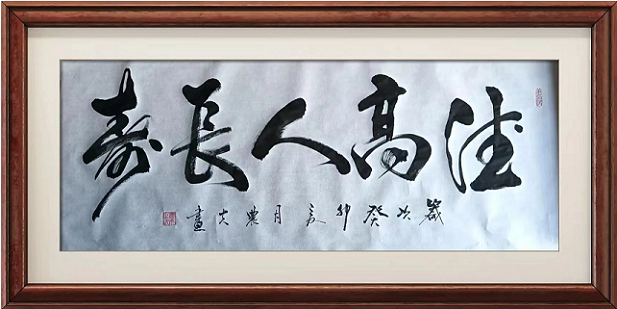 德高人長壽
歲次癸卯夏月農夫書